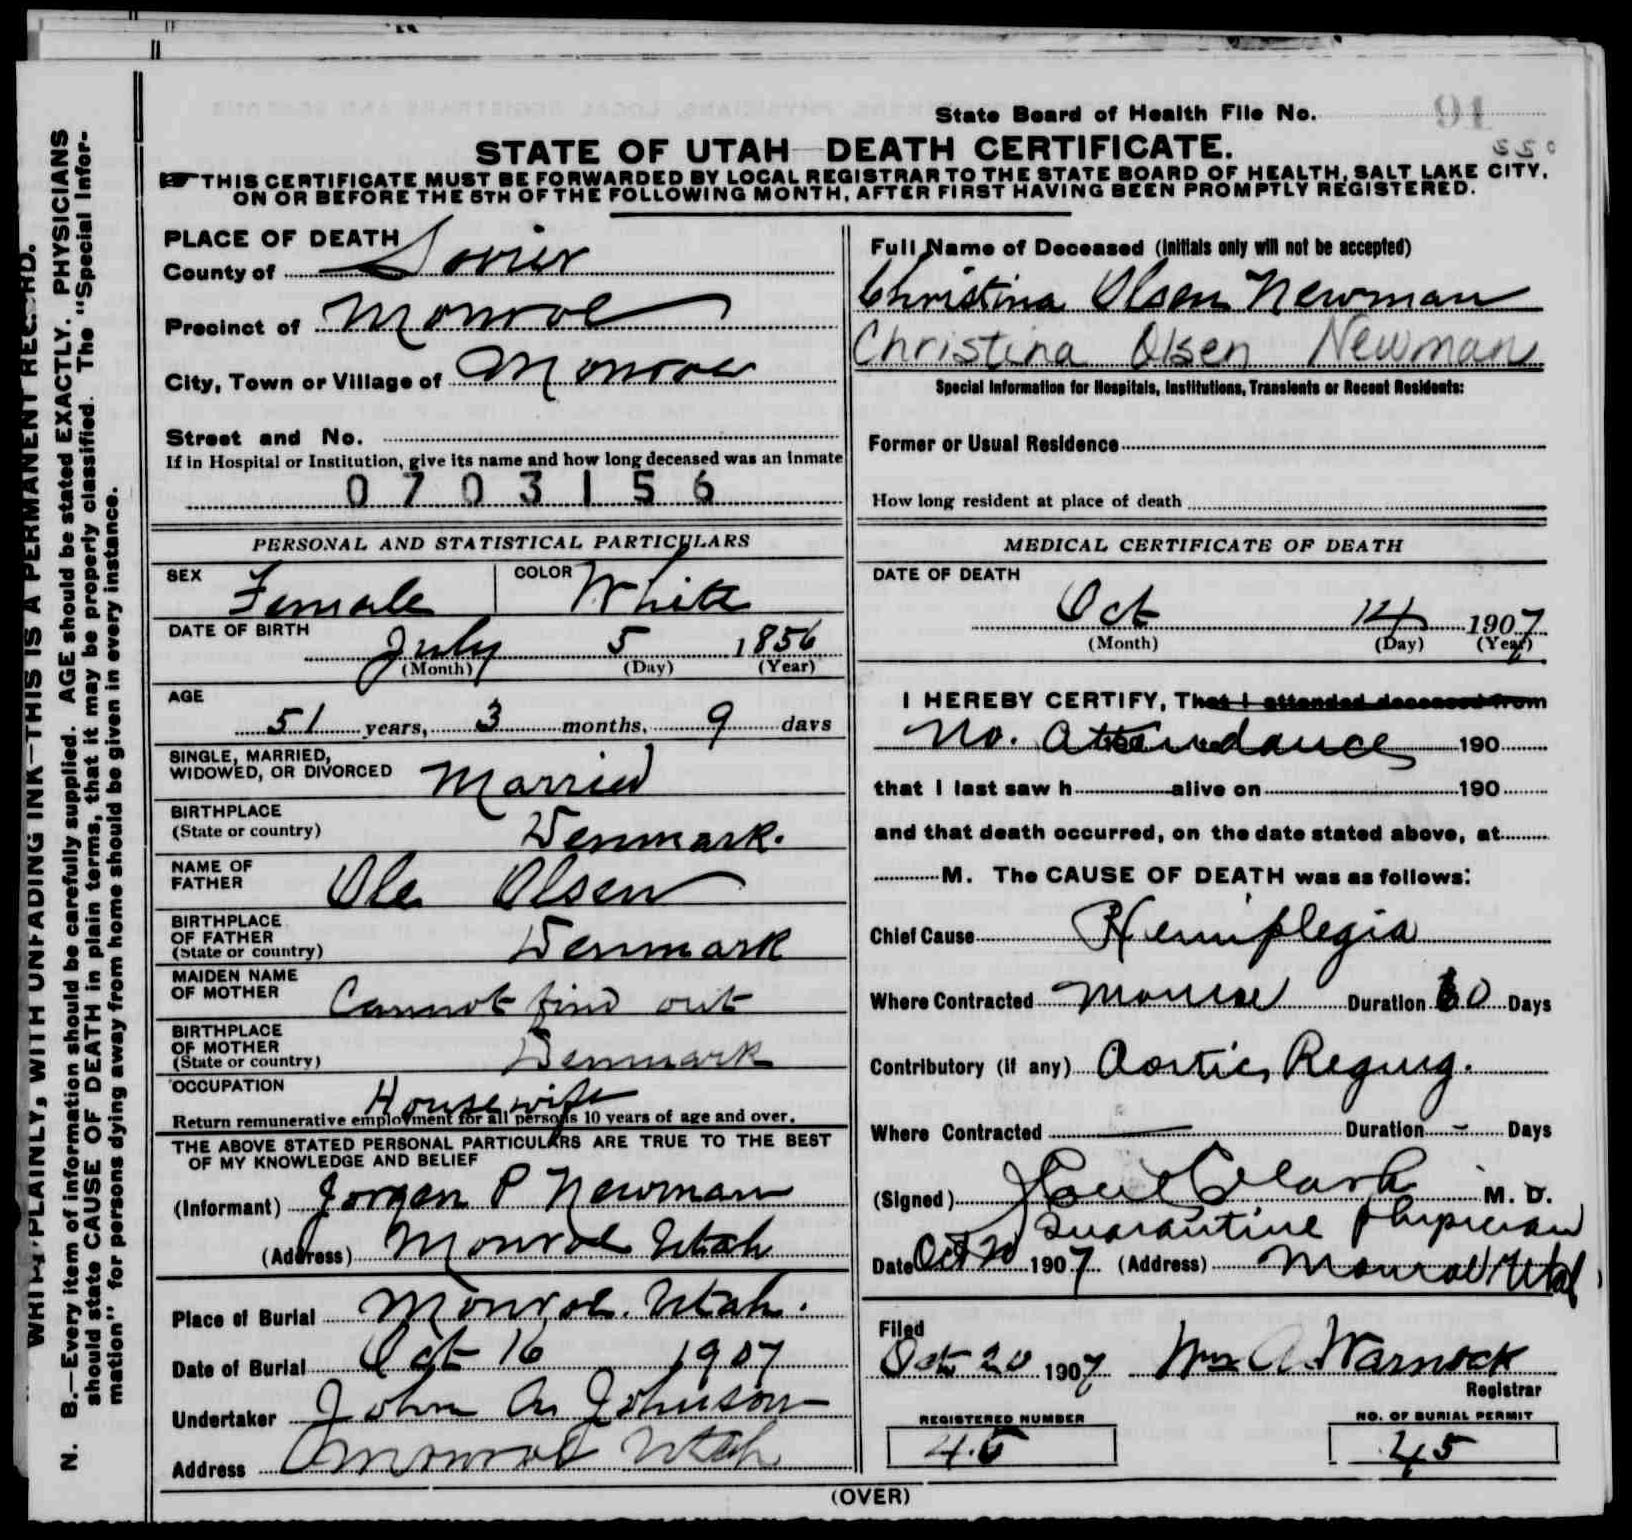 State Board of Health File No. 91
STATE OF UTAH DEATH CERTIFICATE.
THIS CERTIFICATE MUST BE FORWARDED BY LOCAL REGISTRAR TO THE STATE BOARD OF HEALTH, SALT LAKE CITY,
ON OR BEFORE THE 5TH OF THE FOLLOWING MONTH, AFTER FIRST HAVING BEEN PROMPTLY REGISTERED.
WRITE PLAINLY, WITH UNFADING INK—THIS IS A PERMANENT RECORD.
N. B.—Every item of information should be carefully supplied. AGE should be stated EXACTLY. PHYSICIANS
should state CAUSE OF DEATH in plain terms, that it may be properly classified. The "Special Infor-
mation" for persons dying away from home should be given in every instance.
PLACE OF DEATH
County of Sovier
Precinct of Monroe
City, Town or Village of Monroe
Street and No.
If in Hospital or Institution, give its name and how long deceased was an inmate
0 7 0 3 1 5 6
PERSONAL AND STATISTICAL PARTICULARS
SEX Female COLOR White
DATE OF BIRTH
July 5 1856
(Month) (Day) (Year)
AGE
51 years, 3 months, 9 days
SINGLE, MARRIED,
WIDOWED, OR DIVORCED Married
BIRTHPLACE
(State or country) Denmark.
NAME OF
FATHER Ole Olsen
BIRTHPLACE
OF FATHER
(State or country) Denmark
MAIDEN NAME
OF MOTHER Cannot find out
BIRTHPLACE
OF MOTHER
(State or country) Denmark
OCCUPATION Housewife
Return remunerative employment for all persons 10 years of age and over.
THE ABOVE STATED PERSONAL PARTICULARS ARE TRUE TO THE BEST
OF MY KNOWLEDGE AND BELIEF
(Informant) Jorgen P Newman
(Address) Monroe Utah
Place of Burial Monroe. Utah.
Date of Burial Oct 16 1907
Undertaker John A. Johnson
Address Monroe Utah
Full Name of Deceased (Initials only will not be accepted)
Christina Olsen Newman
Christina Olsen Newman
Special Information for Hospitals, Institutions, Transients or Recent Residents:
Former or Usual Residence
How long resident at place of death
MEDICAL CERTIFICATE OF DEATH
DATE OF DEATH
Oct 14 1907
(Month) (Day) (Year)
I HEREBY CERTIFY, That I attended deceased from
No. Attendance 190
that I last saw h alive on 190
and that death occurred, on the date stated above, at
M. The CAUSE OF DEATH was as follows:
Chief Cause Hemiplegia
Where Contracted Monroe Duration 60 Days
Contributory (if any) Aortic Regurg.
Where Contracted — Duration - Days
(Signed) Clark M. D.
Quarantine physician
Date Oct 20 1907 (Address) Monroe Utah
Filed
Oct 20 1907 Wm A. Warnock
Registrar
REGISTERED NUMBER
45
NO. OF BURIAL PERMIT
45
(OVER)